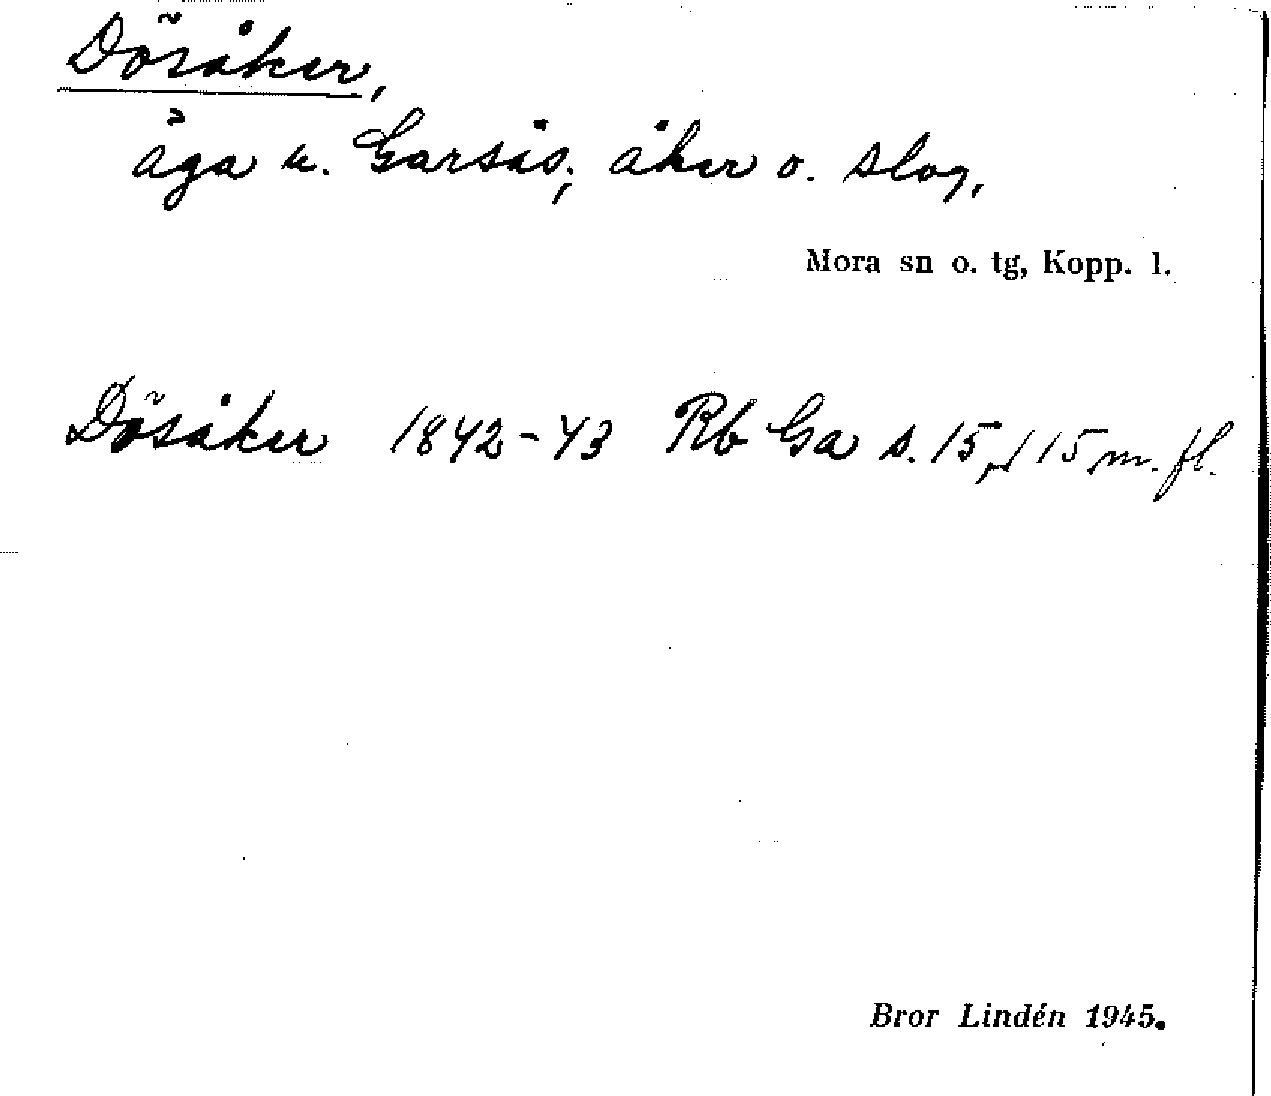 Dösåker,
äga u. Garsås; åker o. slog,
Mora sn o. tg, Kopp. l.
Dösåker 1842-43 Rb Ga s. 15, 115 m. fl.
Bror Lindén 1945.